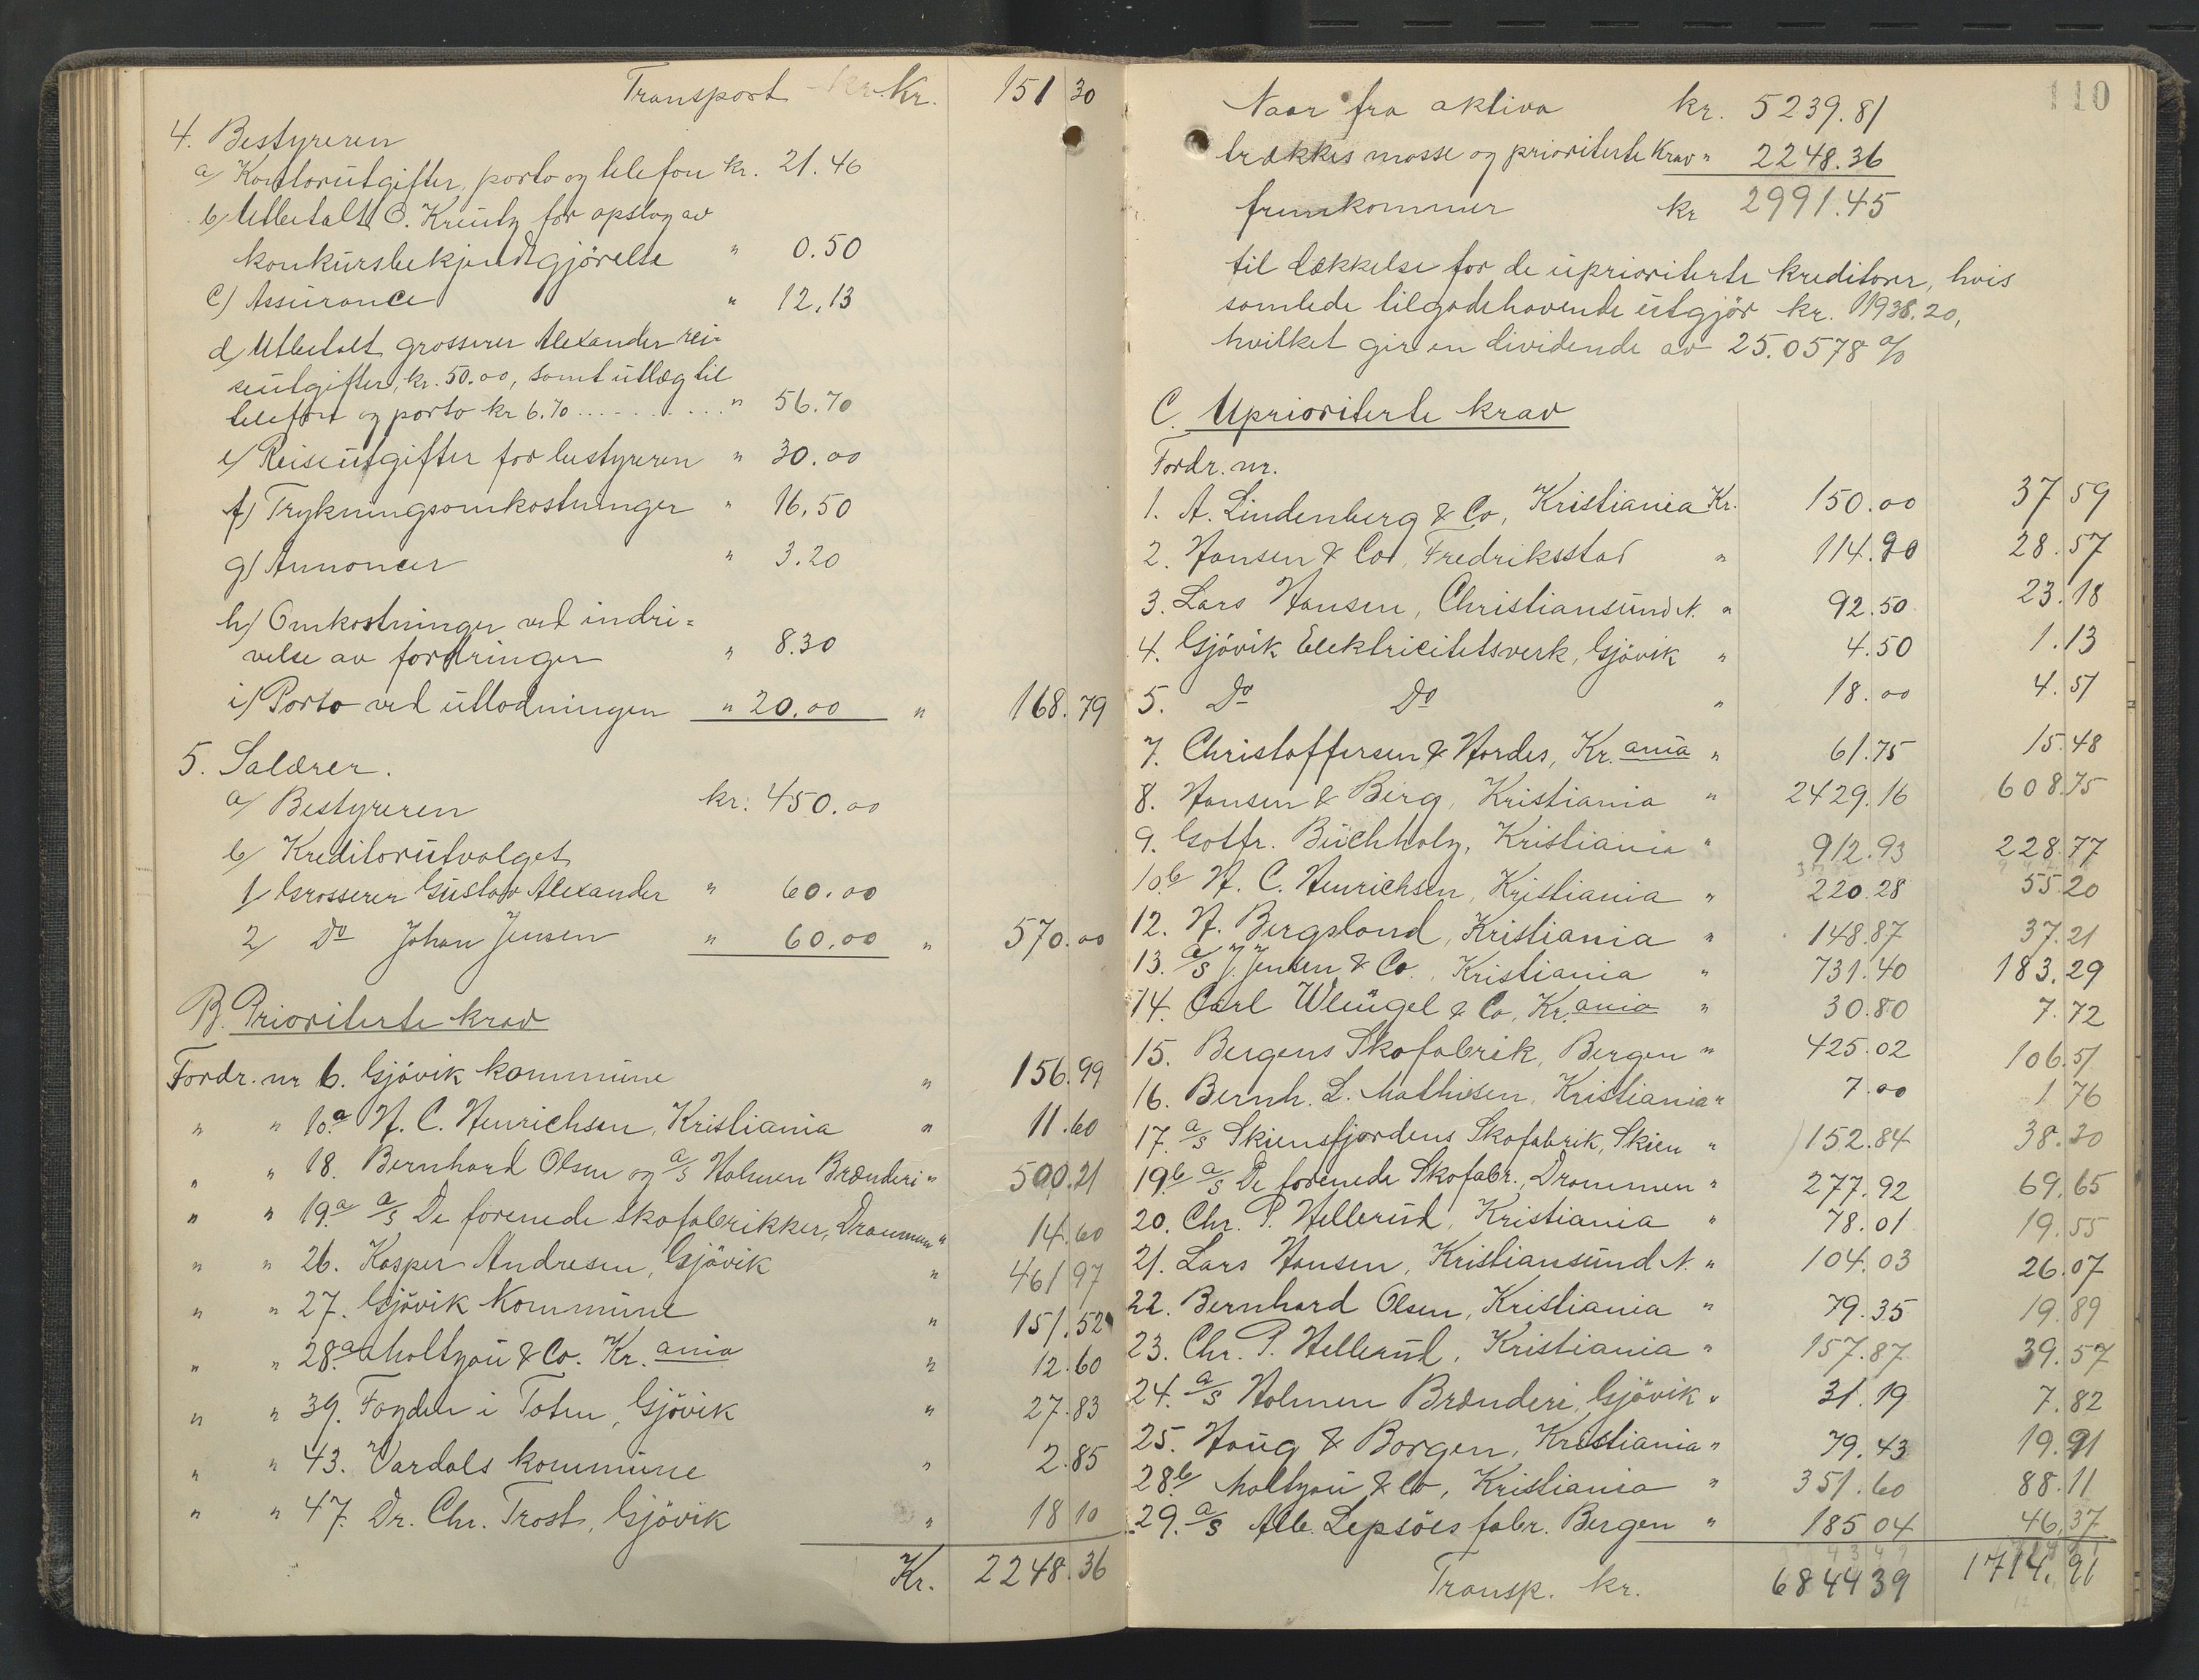 Transport Kr. 151 30
4. Bestyreren
a/ Kontorutgifter, porto og telefon kr. 21.46
b/ Utbetalt O. Kreutz for opslag av
konkursbekjendtgjörelse " 0.50
c/ Assurance " 12.13
d/ Utbetalt grosserer Alexander rei-
seutgifter, kr. 50.00, samt utlæg til
telefon og porto kr 6.70 .......... " 56.70
e/ Reiseutgifter for bestyreren " 30.00
f/ Trykningsomkostninger " 16.50
g/ Annoncer " 3.20
h/ Omkostninger ved indri=
velse av fordringer " 8.30
i/ Porto ved utlodningen " 20.00 " 168.79
5. Salærer.
a/ Bestyreren kr. 450.00
b/ Kreditorutvalget
1/ Grosserer Gustav Alexander " 60.00
2/ Do Johan Jensen " 60.00 " 570.00
B. Prioriterte krav
Fordr. nr 6. Gjövik kommune " 156.99
" " 10.a H. C. Henrichsen, Kristiania " 11.60
" " 18. Bernhard Olsen og a/s Holmen Brænderi " 500.21
" " 19.a a/s De forenede skofabrikker, Drammen " 14.60
" " 26. Kasper Andresen, Gjövik " 461 97
" " 27. Gjövik Kommune " 151.52
" " 28.a Moltzau & Co. Kr.ania " 12.60
" " 39. Fogden i Toten, Gjövik " 27.83
" " 43. Vardals kommune " 2.85
" " 47. Dr. Chr. Trost, Gjövik " 18 10
Kr. 2248.36
110
Naar fra aktiva kr. 5239.81
trækkes masse og prioriterte Krav " 2248.36
fremkommer kr 2991.45
til dækkelse for de uprioriterte kreditorer, hvis
samlede tilgodehavende utgjör kr. 11938.20,
hvilket gir en dividende av 25.0578 %
C. Uprioriterte krav
Fordr. nr.
1. A. Lindenberg & Co, Kristiania Kr. 150.00 37 59
2. Hansen & Co, Fredriksstad " 114.90 28.57
3. Lars Hansen, Christiansund N. " 92.50 23.18
4. Gjövik Elektricitetsverk, Gjövik " 4.50 1.13
5. Do Do " 18.00 4.51
7. Christoffersen & Hordes, Kr.ania " 61.75 15.48
8. Hansen & Berg, Kristiania " 2429.16 608.75
9. Gotfr. Buchholz, Kristiania " 912.93 228.77
10b H. C. Henrichsen, Kristiania " 220.28 55.20
12. H. Bergsland, Kristiania " 148.87 37.21
13. a/s J. Jensen & Co., Kristiania " 731.40 183.29
14. Carl Wleügel & Co, Kr.ania " 30.80 7.72
15. Bergens Skofabrik, Bergen " 425.02 106.51
16. Bernh. L. Mathiesen, Kristiania " 7.00 1 76
17. a/s Skiensfjordens Skofabrik, Skien " 152.84 38.30
19b. a/s De forenede Skofabr., Drammen " 277.92 69.65
20. Chr. P. Hellerud, Kristiania " 78.01 19.55
21. Lars Hansen, Kristiansund N. " 104.03 26.07
22. Bernhard Olsen, Kristiania " 79.35 19 89
23. Chr. P. Hellerud, Kristiania " 157.87 39.57
24. a/s Holmen Brænderi, Gjövik " 31.19 7.82
25. Haug & Borgen, Kristiania " 79.43 19.91
28.b Moltzau & Co, Kristiania " 351.60 88.11
29. a/s Alb. Lepsöes fabr. Bergen " 185 04 46.37
Transp. kr. 6844 39 1714.91